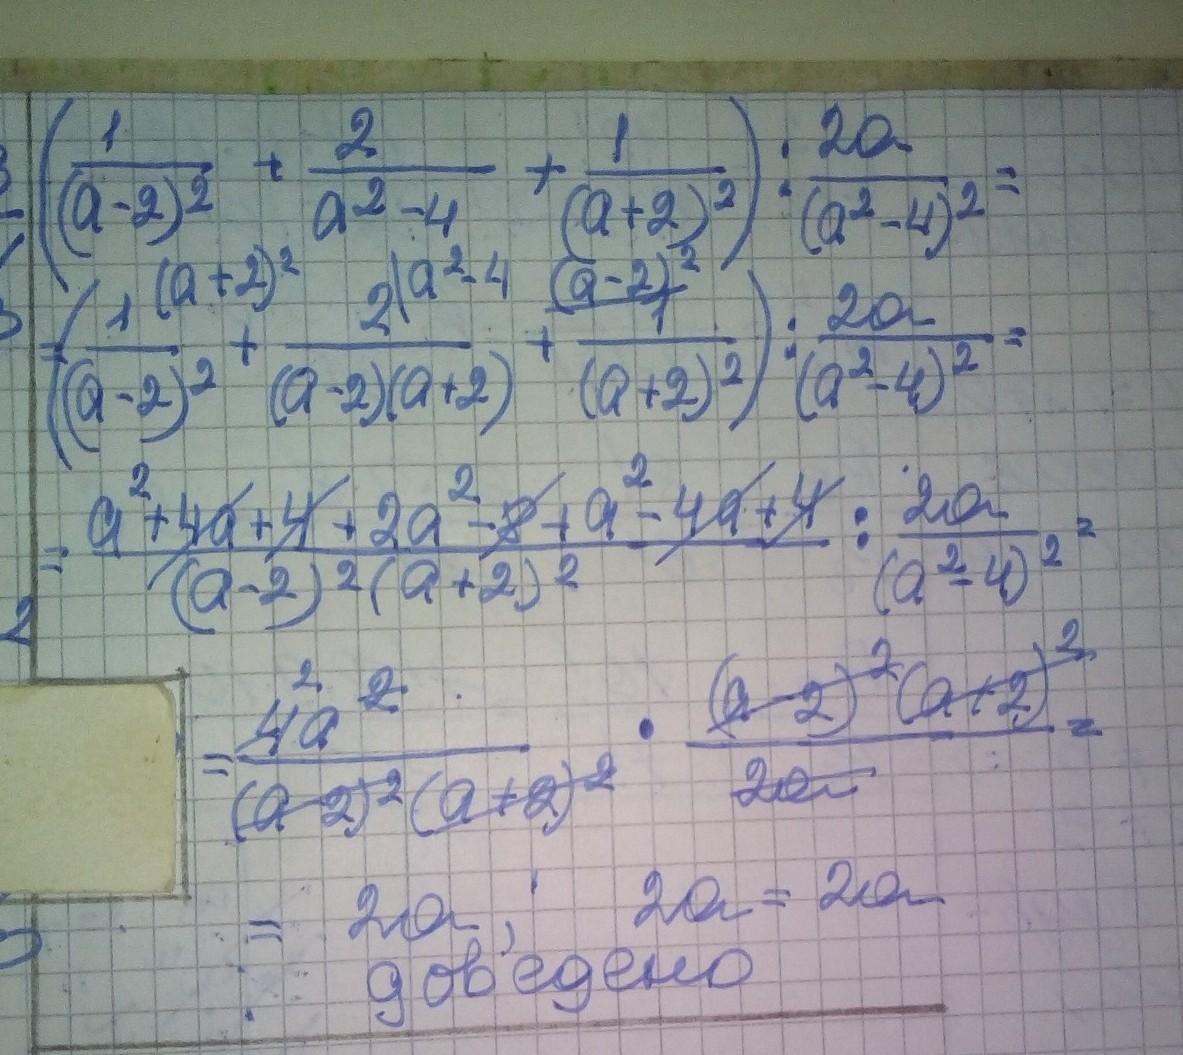 (1/(a-2)² + 2/(a²-4) + 1/(a+2)²) : 2a/(a²-4)² =
(a+2)² |a²-4 (a-2)²
= (1/(a-2)² + 2/((a-2)(a+2)) + 1/(a+2)²) : 2a/(a²-4)² =
= (a²+4a+4+2a²-8+a²-4a+4)/((a-2)²(a+2)²) : 2a/(a²-4)² =
2
= 4a²/((a-2)²(a+2)²) · ((a-2)²(a+2)²)/2a =
= 2a; 2a = 2a
дов'едено